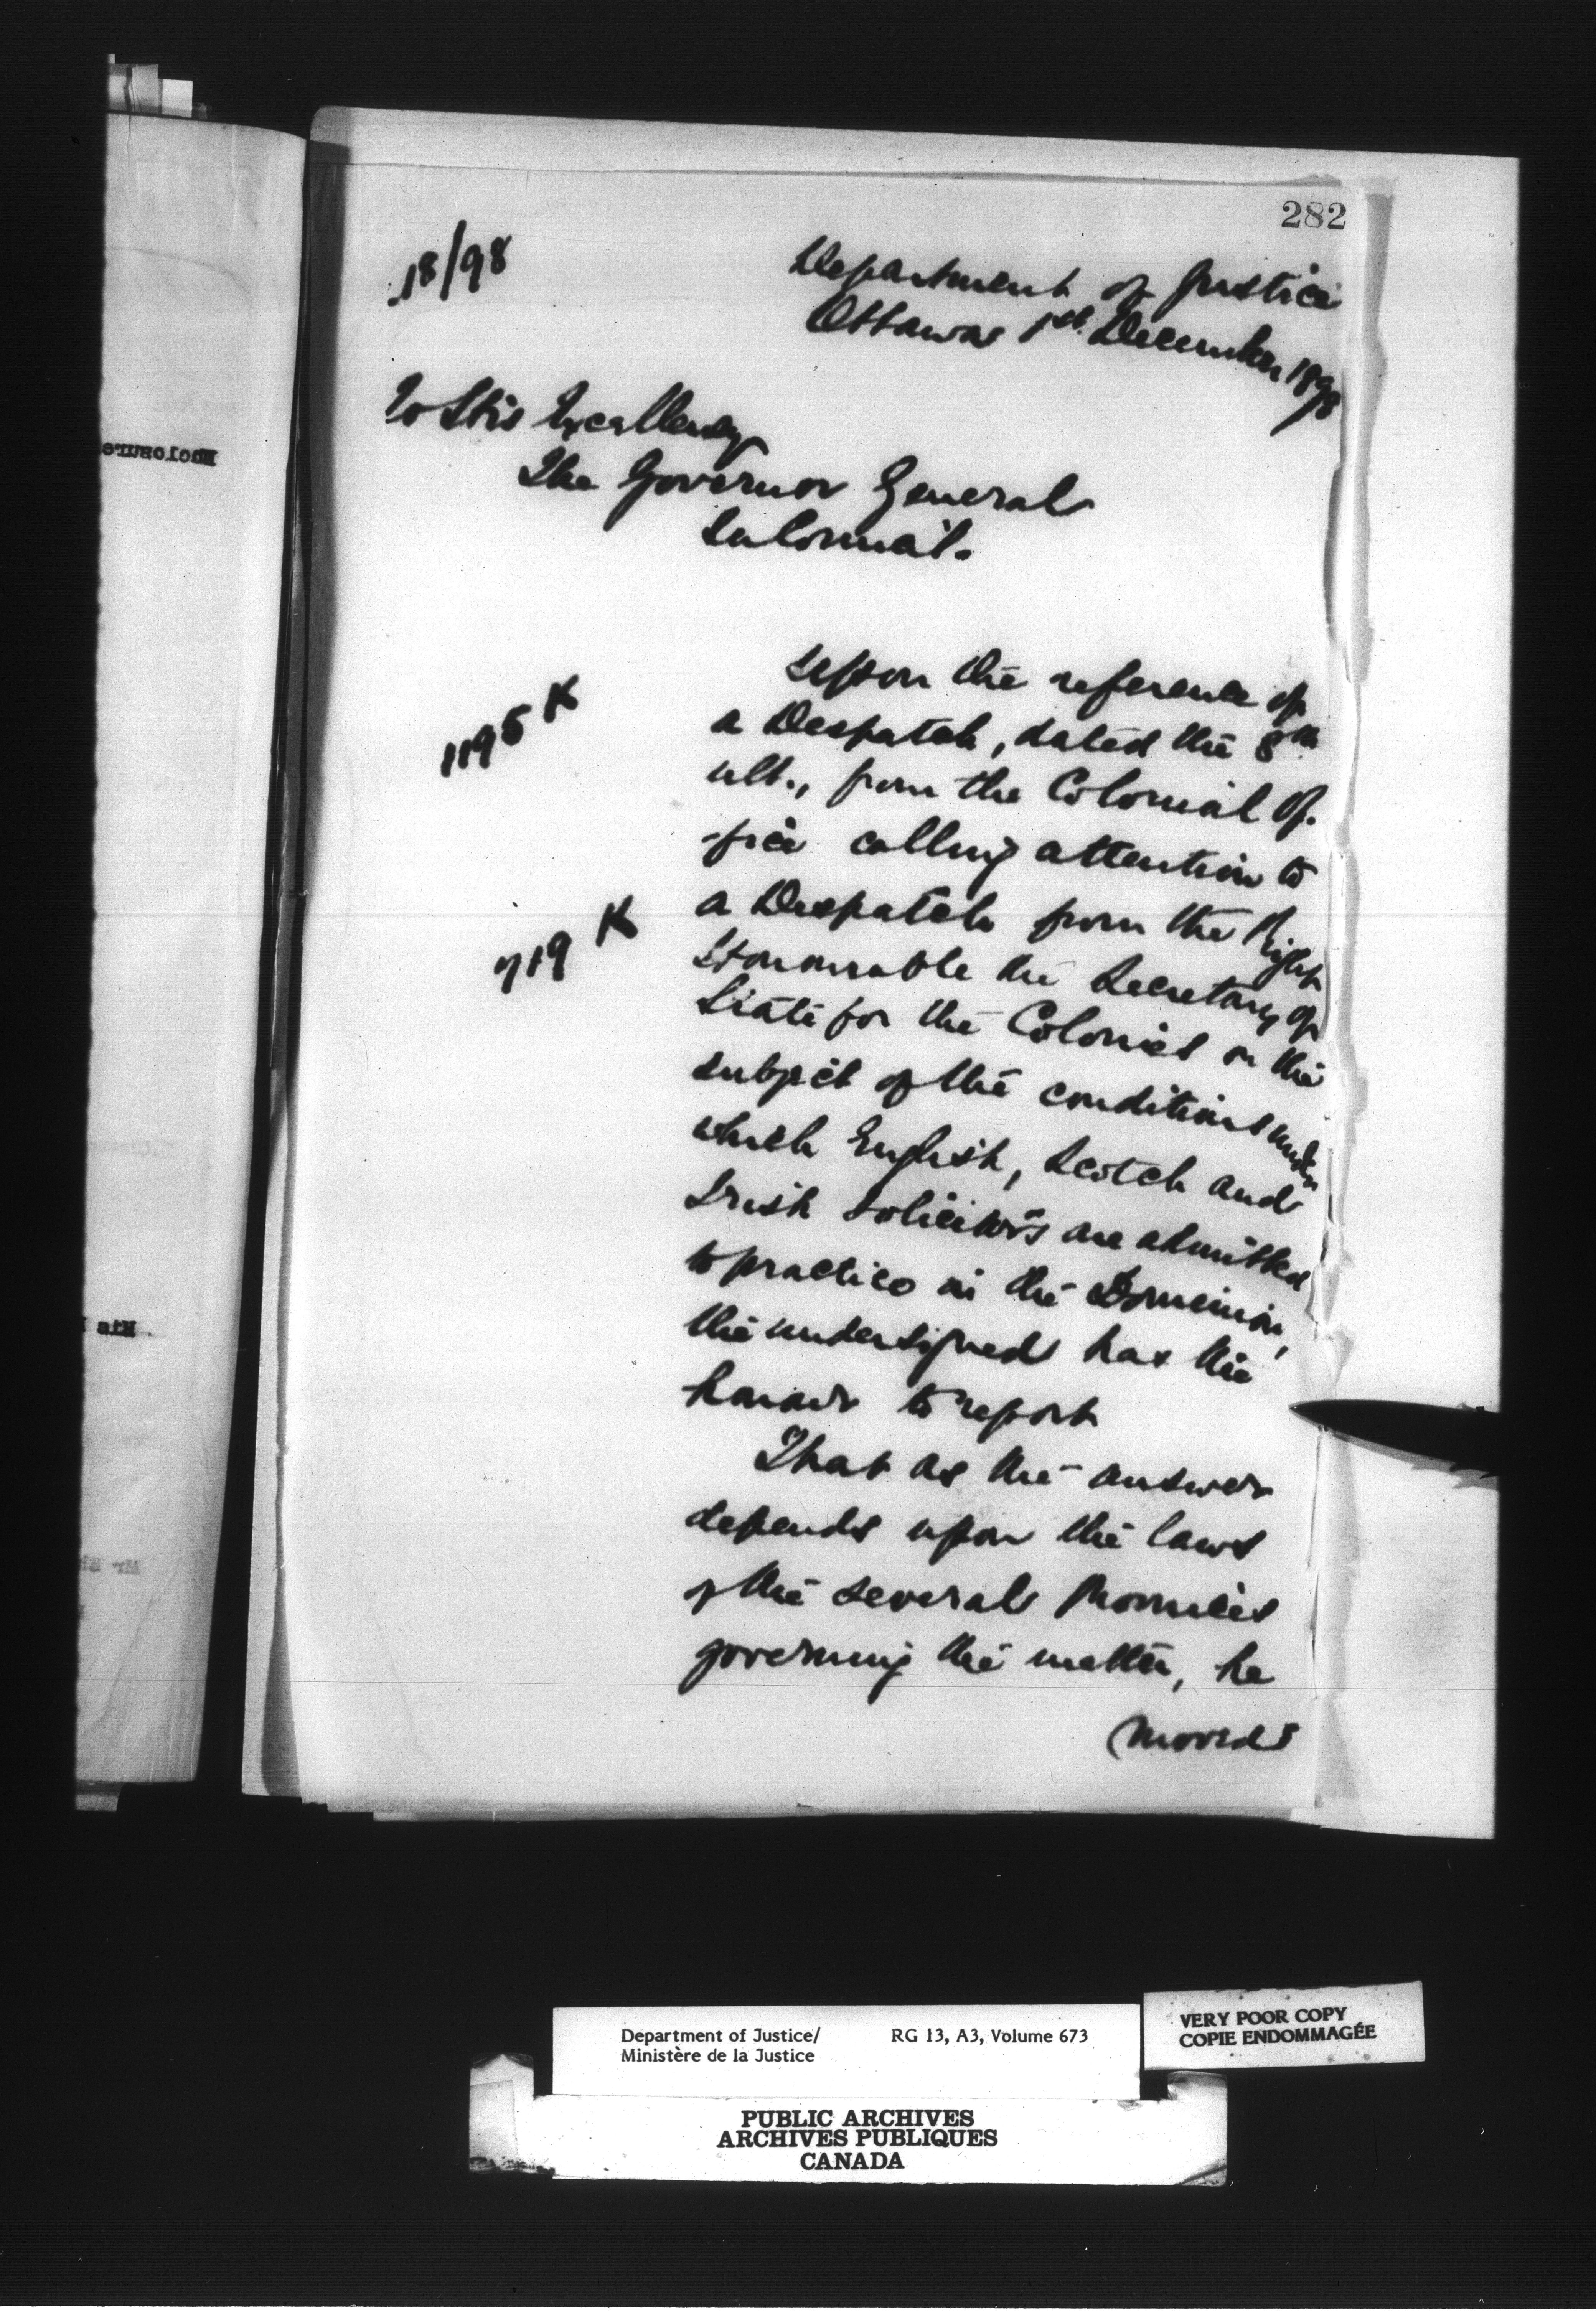 282
18/98
Department of Justice
Ottawa 1st. December 1898
To His Excellency
The Governor General
In Council.
Upon the reference of
1195 K
a Despatch, dated the 8th
ult., from the Colonial Of-
-fice calling attention to
a Despatch from the Right
719 K
Honourable the Secretary of
State for the Colonies on the
subject of the conditions under
which English, Scotch and
Irish Solicitors are admitted
to practice in the Dominion,
the undersigned has the
honour to report
That as the answer
depends upon the laws
of the several Provinces
governing the matter, he
Enclosure
Department of Justice/
Ministère de la Justice
RG 13, A3, Volume 673
VERY POOR COPY
COPIE ENDOMMAGÉE
PUBLIC ARCHIVES
ARCHIVES PUBLIQUES
CANADA